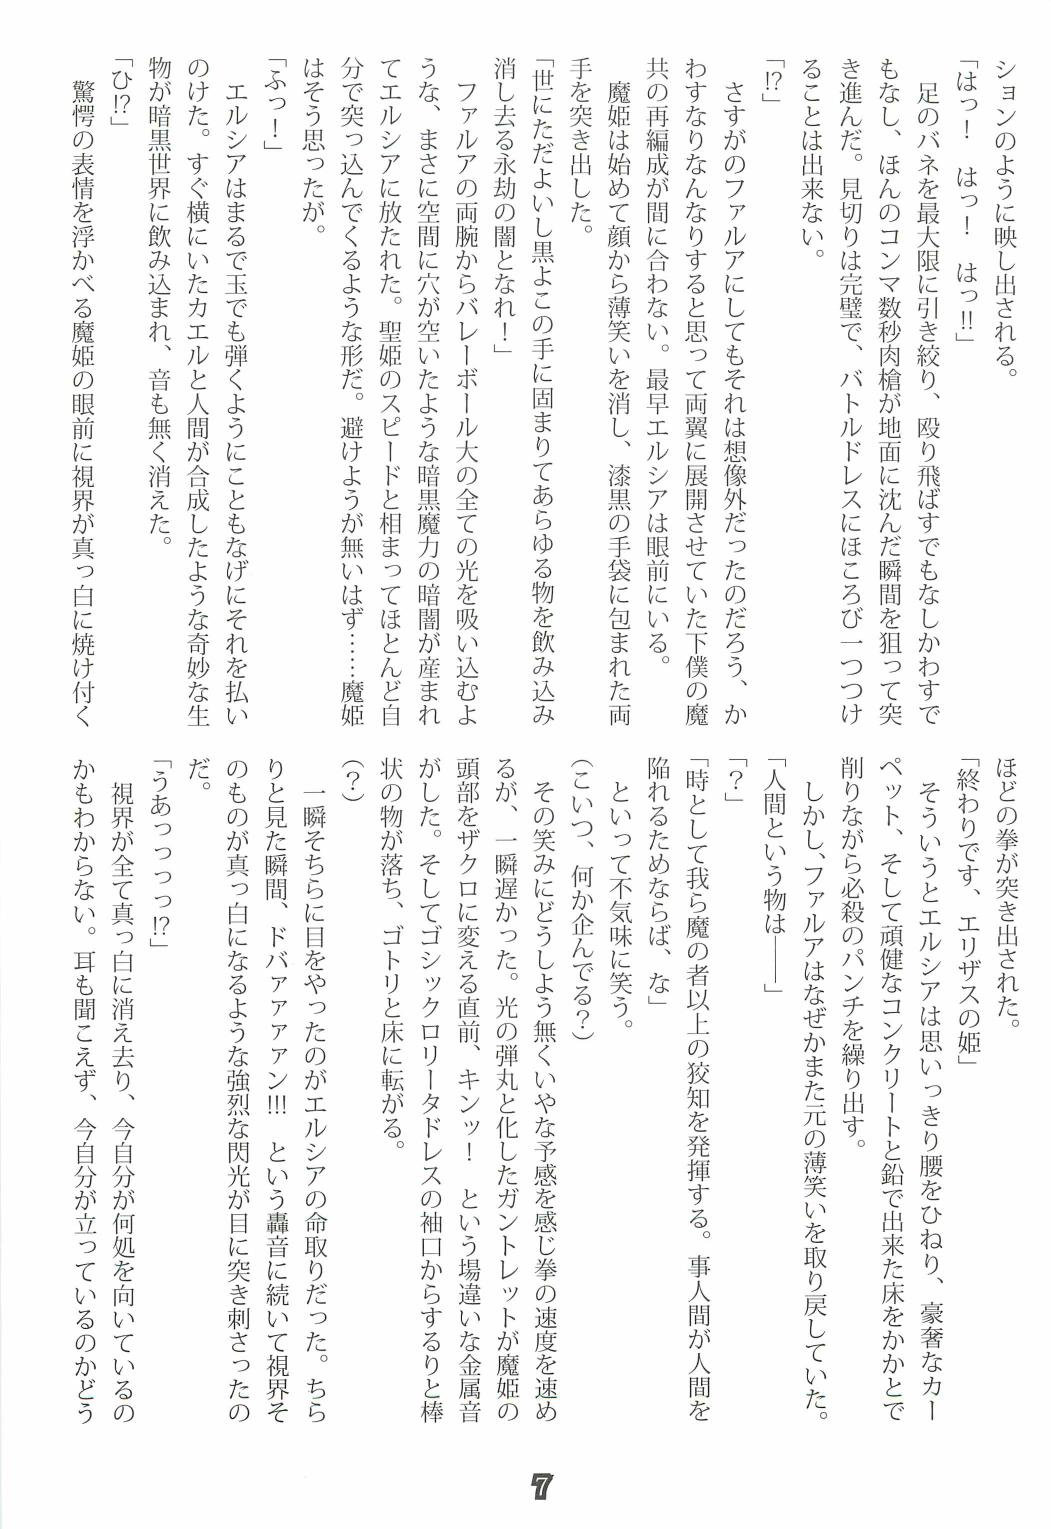 ションのように映し出される。
「はっ！　はっ！　はっ!!」
　足のバネを最大限に引き絞り、殴り飛ばすでもなしかわすで
もなし、ほんのコンマ数秒肉槍が地面に沈んだ瞬間を狙って突
き進んだ。見切りは完璧で、バトルドレスにほころび一つつけ
ることは出来ない。
「!?」
　さすがのファルアにしてもそれは想像外だったのだろう、か
わすなりなんなりすると思って両翼に展開させていた下僕の魔
共の再編成が間に合わない。最早エルシアは眼前にいる。
　魔姫は始めて顔から薄笑いを消し、漆黒の手袋に包まれた両
手を突き出した。
「世にただよいし黒よこの手に固まりてあらゆる物を飲み込み
消し去る永劫の闇となれ！」
　ファルアの両腕からバレーボール大の全ての光を吸い込むよ
うな、まさに空間に穴が空いたような暗黒魔力の暗闇が産まれ
てエルシアに放たれた。聖姫のスピードと相まってほとんど自
分で突っ込んでくるような形だ。避けようが無いはず……魔姫
はそう思ったが。
「ふっ！」
　エルシアはまるで玉でも弾くようにこともなげにそれを払い
のけた。すぐ横にいたカエルと人間が合成したような奇妙な生
物が暗黒世界に飲み込まれ、音も無く消えた。
「ひ!?」
　驚愕の表情を浮かべる魔姫の眼前に視界が真っ白に焼け付く
ほどの拳が突き出された。
「終わりです、エリザスの姫」
　そういうとエルシアは思いっきり腰をひねり、豪奢なカー
ペット、そして頑健なコンクリートと鉛で出来た床をかかとで
削りながら必殺のパンチを繰り出す。
　しかし、ファルアはなぜかまた元の薄笑いを取り戻していた。
「人間という物は――」
「？」
「時として我ら魔の者以上の狡知を発揮する。事人間が人間を
陥れるためならば、な」
　といって不気味に笑う。
（こいつ、何か企んでる？）
　その笑みにどうしよう無くいやな予感を感じ拳の速度を速め
るが、一瞬遅かった。光の弾丸と化したガントレットが魔姫の
頭部をザクロに変える直前、キンッ！　という場違いな金属音
がした。そしてゴシックロリータドレスの袖口からするりと棒
状の物が落ち、ゴトリと床に転がる。
（？）
　一瞬そちらに目をやったのがエルシアの命取りだった。ちら
りと見た瞬間、ドバァァァァン!!!　という轟音に続いて視界そ
のものが真っ白になるような強烈な閃光が目に突き刺さったの
だ。
「うあっっっっ!?」
　視界が全て真っ白に消え去り、今自分が何処を向いているの
かもわからない。耳も聞こえず、今自分が立っているのかどう
7